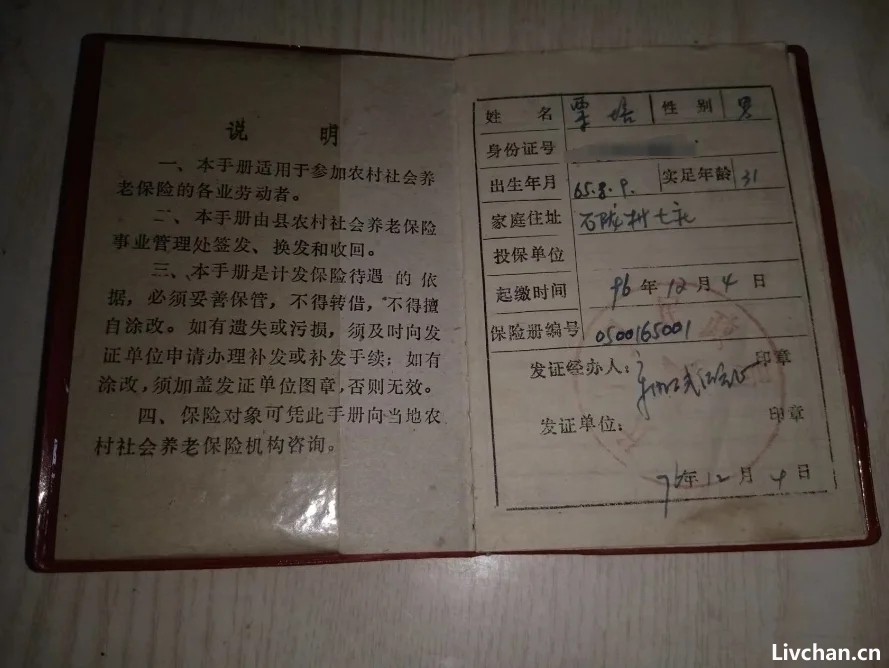 说 明
一、本手册适用于参加农村社会养
老保险的各业劳动者。
二、本手册由县农村社会养老保险
事业管理处签发、换发和收回。
三、本手册是计发保险待遇的依
据，必须妥善保管，不得转借，不得擅
自涂改。如有遗失或污损，须及时向发
证单位申请办理补发或补发手续；如有
涂改，须加盖发证单位图章，否则无效。
四、保险对象可凭此手册向当地农
村社会养老保险机构咨询。
姓 名 性 别 男
身份证号
出生年月 65.8.9. 实足年龄 31
家庭住址 石陇村七
投保单位
起缴时间 96年12月4日
保险册编号 0500165001
发证经办人： 印章
发证单位： 印章
96年12月4日
Livchan.cn